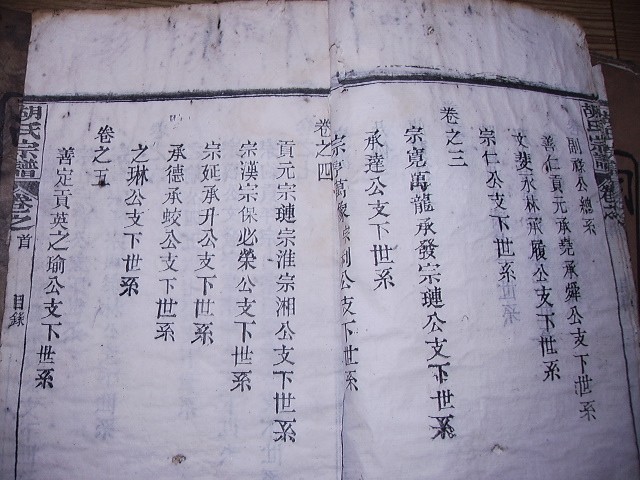 胡氏宗譜
公總系
善仁貢元承堯承舜公支下世系
文斐永林承履公支下世系
宗仁公支下世系
卷之三
宗寬萬龍承發宗璉公支下世系
承達公支下世系
公支下世系
卷之四
貢元宗璉宗淮宗湘公支下世系
宗漢宗保必榮公支下世系
宗延承升公支下世系
承德承蛟公支下世系
之琳公支下世系
卷之五
善定貢英之瑜公支下世系
胡氏宗譜 卷之首 目錄